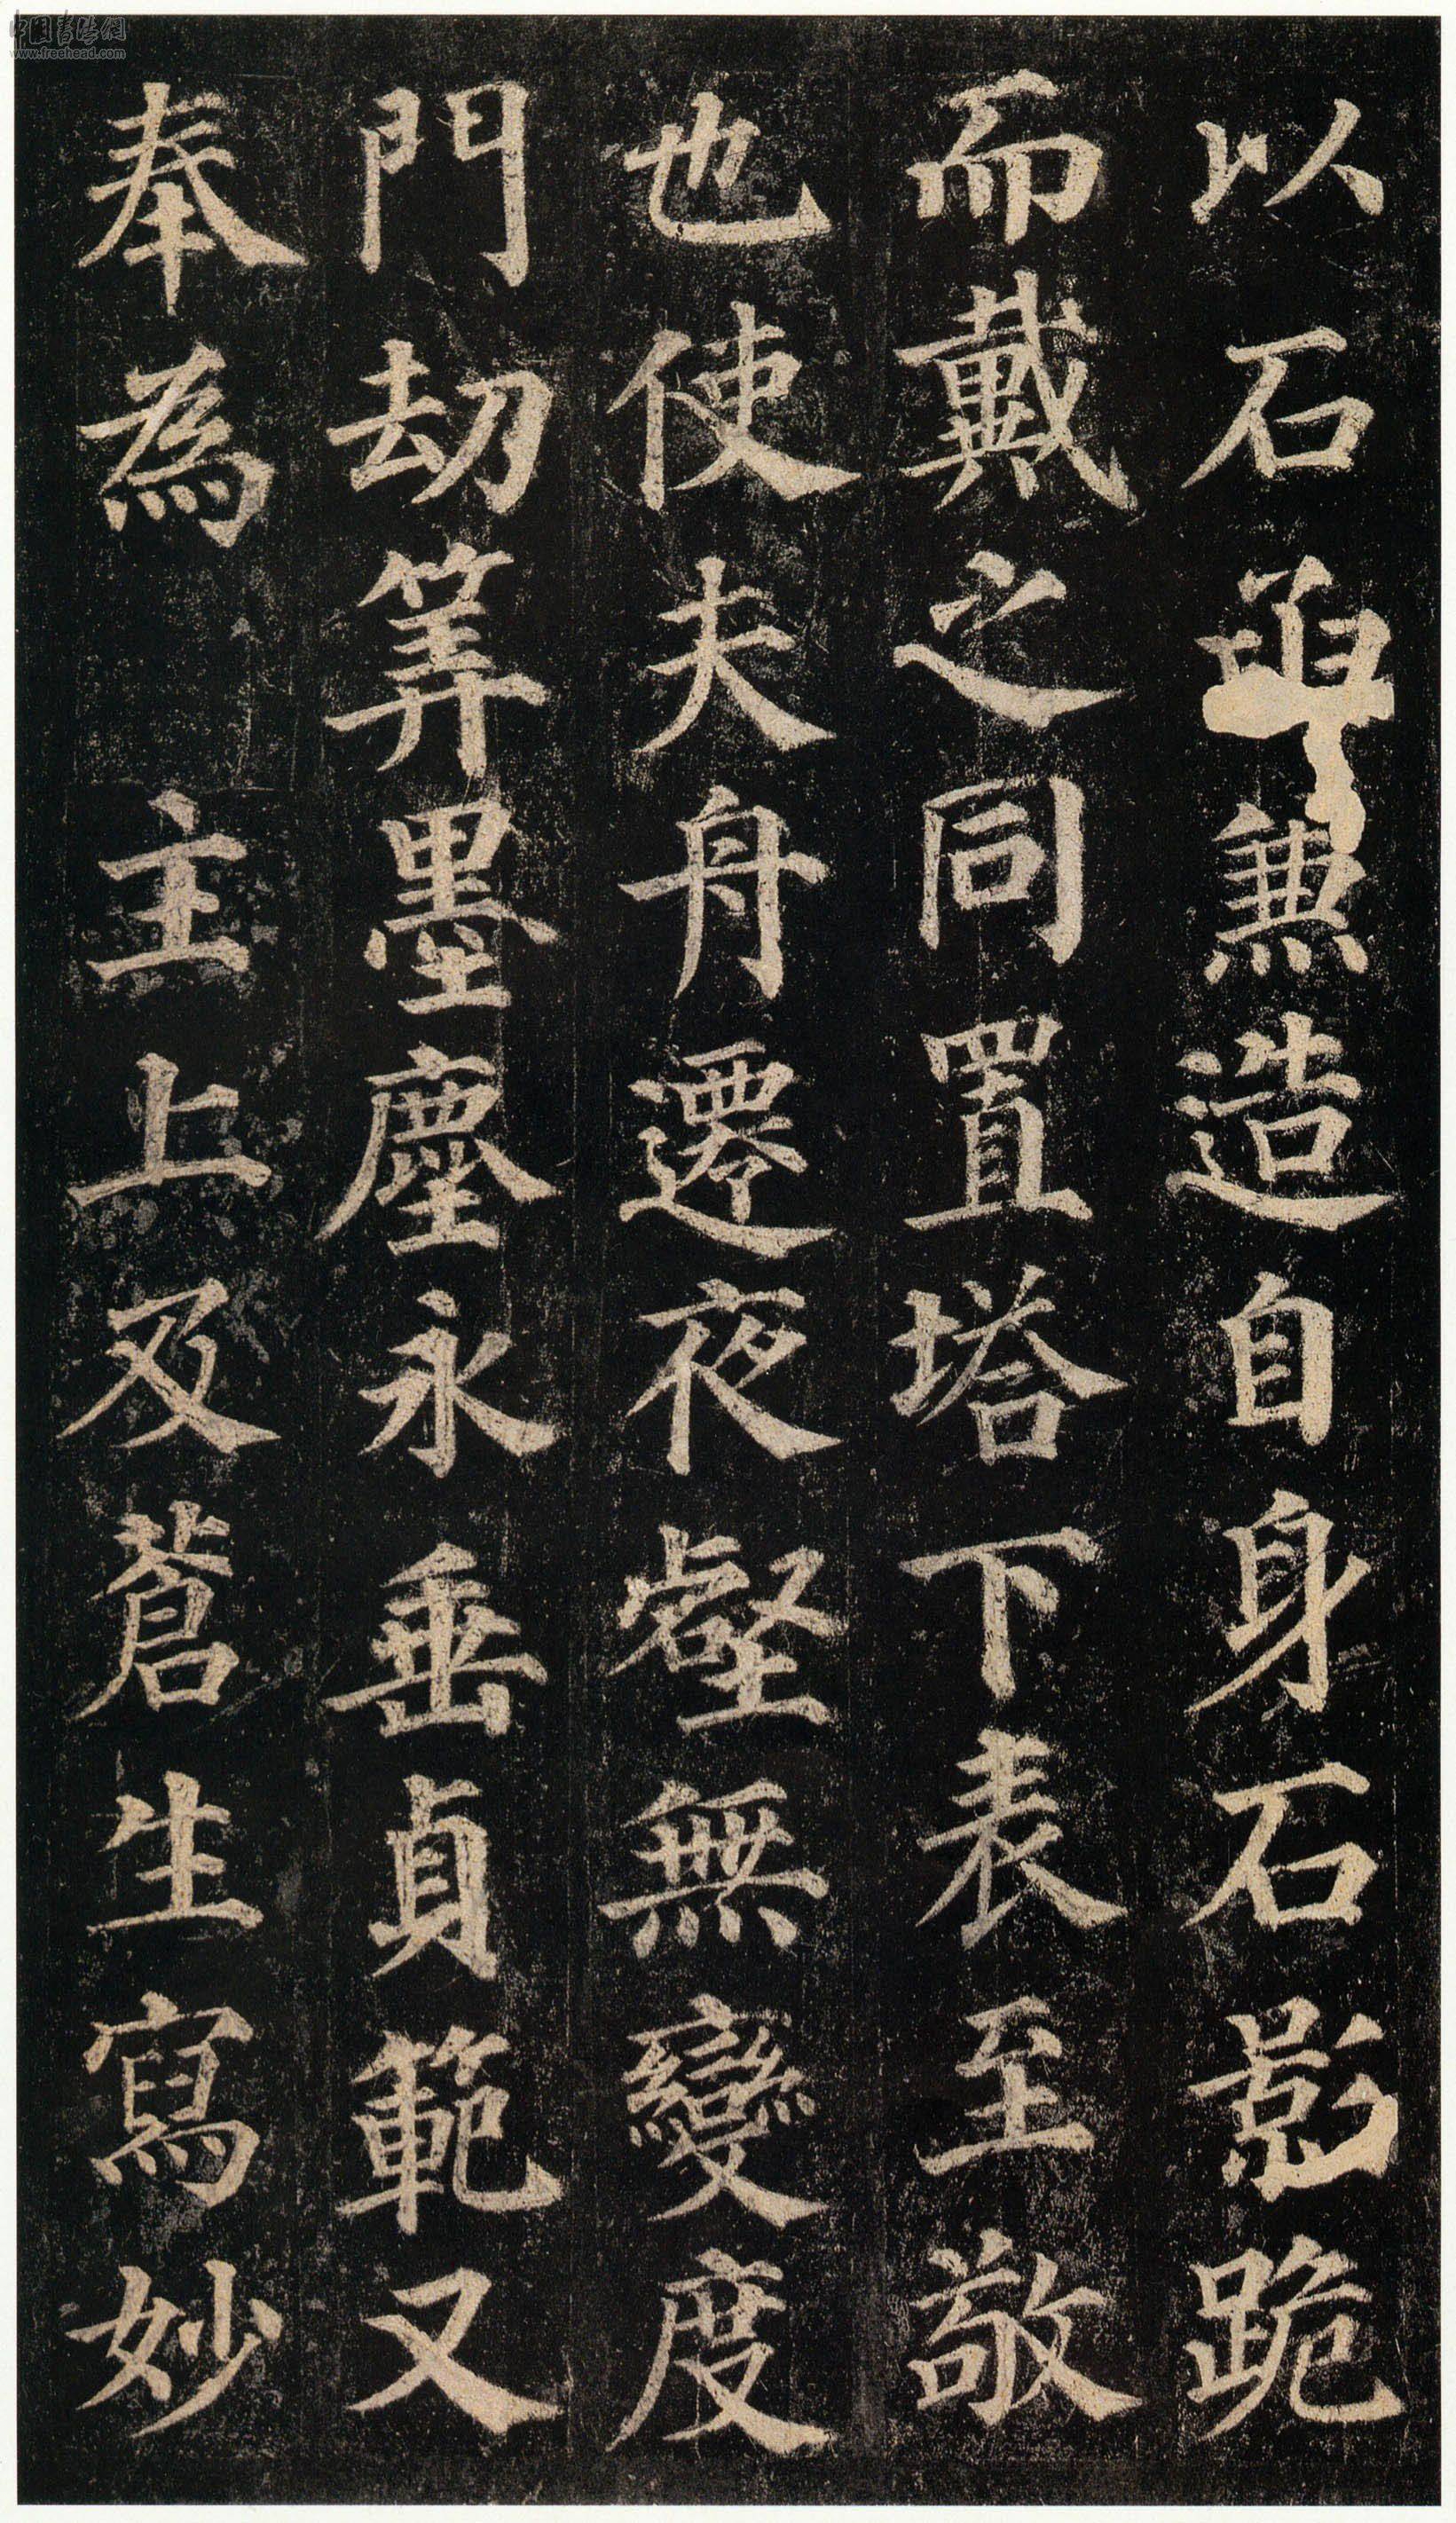 以石 兼造自身石影跪
而戴之同置塔下表至敬
也使夫舟遷夜壑無變度
門劫筭墨塵永垂貞範又
奉為 主上及蒼生寫妙
中国书法网
www.freehead.com